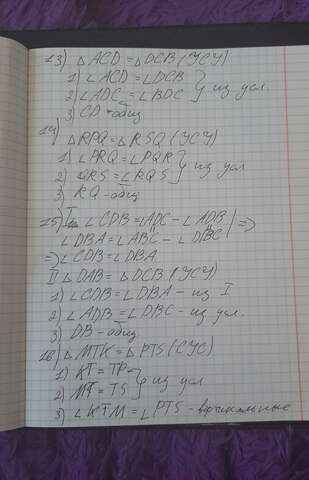 13) △ACD = △DCB (УСУ)
1) ∠ACD = ∠DCB
2) ∠ADC = ∠BDC } из усл.
3) CD - общ
14)
△RPQ = △RSQ (УСУ)
1) ∠PRQ = ∠PQR
2) QRS = ∠RQS } из усл
3) RQ - общ
15) I ∠CDB = ∠ADC - ∠ADB | =>
∠DBA = ∠ABC - ∠DBC
=> ∠CDB = ∠DBA
II △DAB = △DCB (УСУ)
1) ∠CDB = ∠DBA - из I
2) ∠ADB = ∠DBC - из усл.
3) DB - общ
16) △MTK = △PTS (СУС)
1) KT = TP
2) MT = TS } из усл
3) ∠KTM = ∠PTS - вертикальные